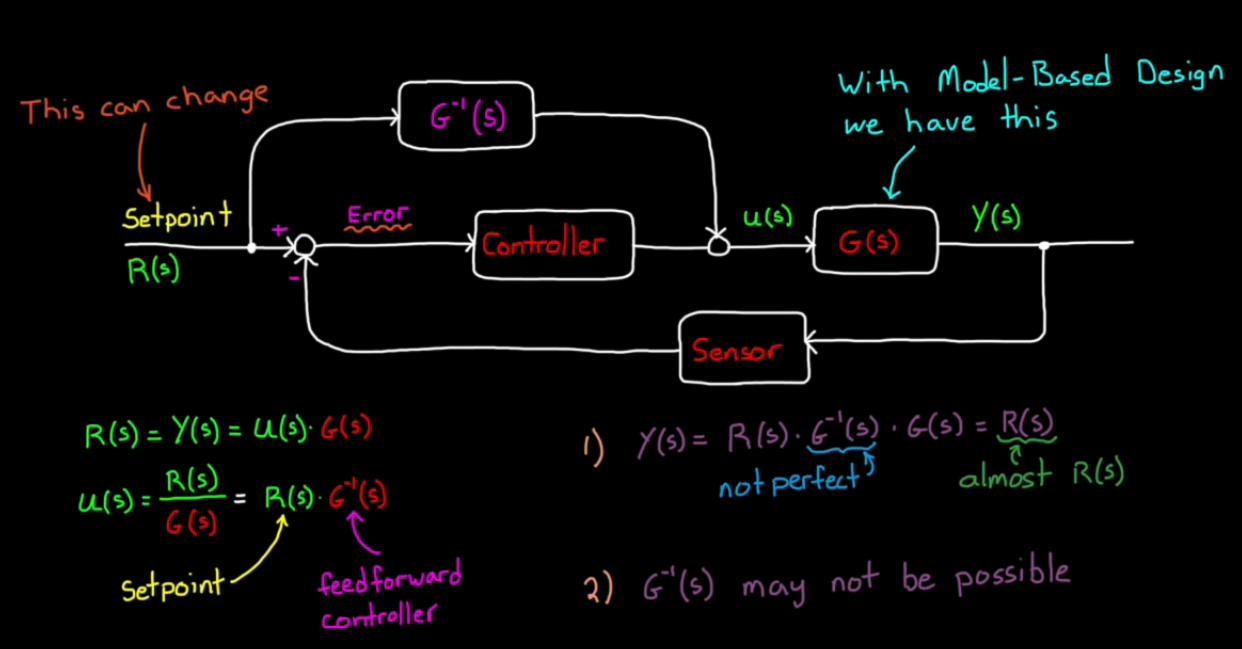 This can change
With Model-Based Design
we have this
G⁻¹(s)
Setpoint
R(s)
+
-
Error
Controller
u(s)
G(s)
Y(s)
Sensor
R(s) = Y(s) = u(s)· G(s)
u(s) = R(s)/G(s) = R(s)· G⁻¹(s)
Setpoint
feedforward
controller
1) Y(s) = R(s) · G⁻¹(s) · G(s) = R(s)
not perfect
almost R(s)
2) G⁻¹(s) may not be possible